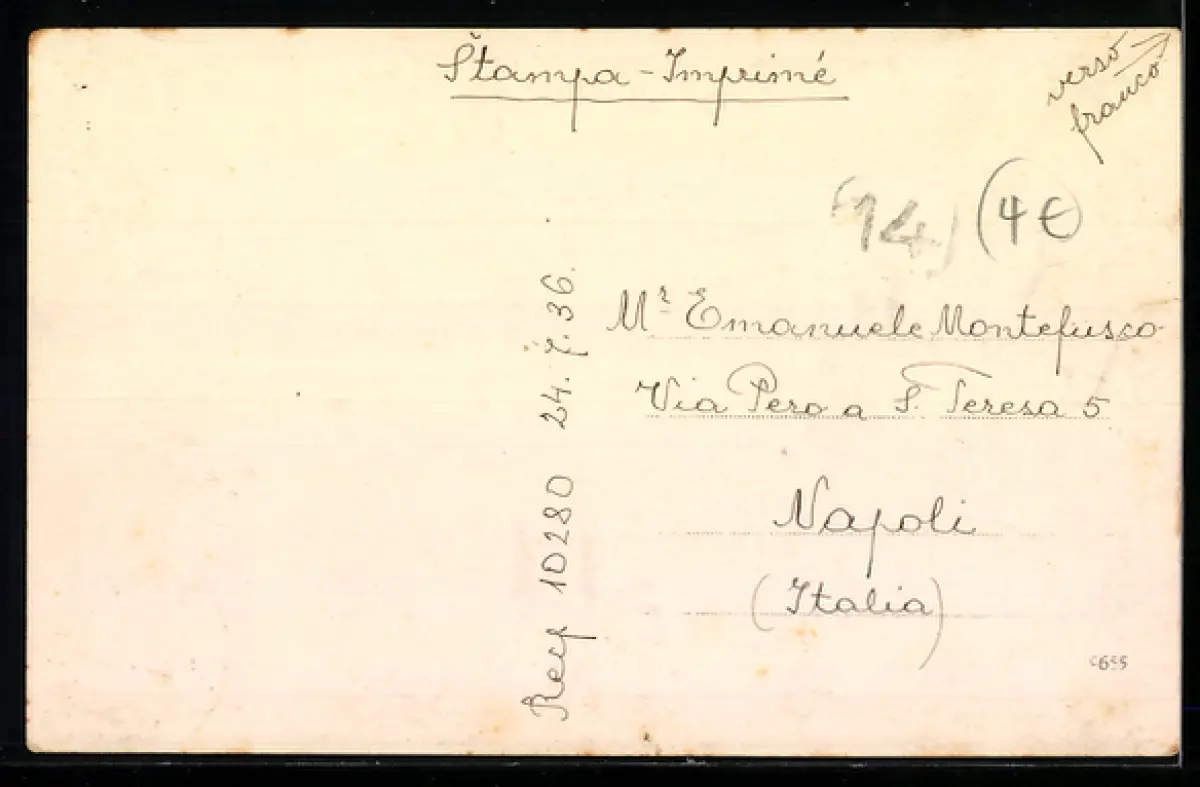 Štampa - Imprimé
verso
franco
(14) (4€)
Mr Emanuele Montefusco
Via Pero a S. Teresa 5
Napoli
(Italia)
10280 24.7.36.
c655